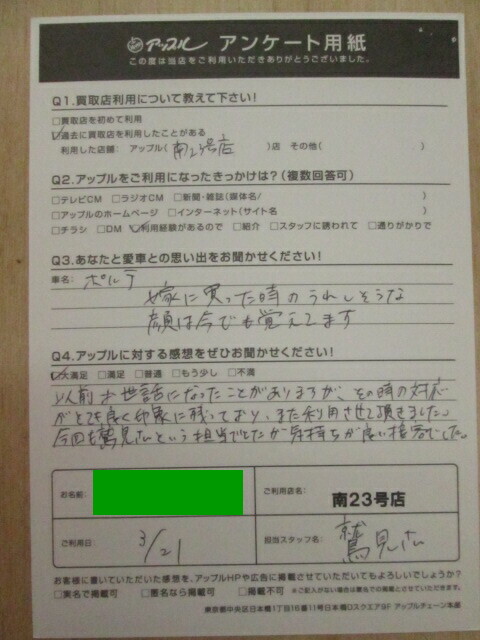 アップル アンケート用紙
この度は当店をご利用いただきありがとうございました。
Q1.買取店利用について教えて下さい!
□買取店を初めて利用
☑過去に買取店を利用したことがある
利用した店舗: アップル(南23号店)店 その他( )
Q2.アップルをご利用になったきっかけは?(複数回答可)
□テレビCM □ラジオCM □新聞・雑誌(媒体名/ )
□アップルのホームページ □インターネット(サイト名 )
□チラシ □DM ☑利用経験があるので □紹介 □スタッフに誘われて □通りがかりで
Q3.あなたと愛車との思い出をお聞かせください!
車名: ポルテ
嫁に買った時のうれしそうな
顔は今でも覚えてます
Q4.アップルに対する感想をぜひお聞かせください!
☑大満足 □満足 □普通 □もう少し □不満
以前お世話になったことがありますが、その時の対応
がとても良く印象に残っており、また利用させて頂きました。
今回も鷲見さんという担当でしたが気持ちが良い接客でした。
お名前:
ご利用店名: 南23号店
ご利用日: 3/21
担当スタッフ名: 鷲見さん
お客様に書いていただいた感想を、アップルHPや広告に掲載させていただいてもよろしいでしょうか?
□実名で掲載可 □匿名なら掲載可 □掲載不可 ※ご記入がない場合は匿名での掲載とさせていただきます。
東京都中央区日本橋1丁目16番11号日本橋Dスクエア9F アップルチェーン本部